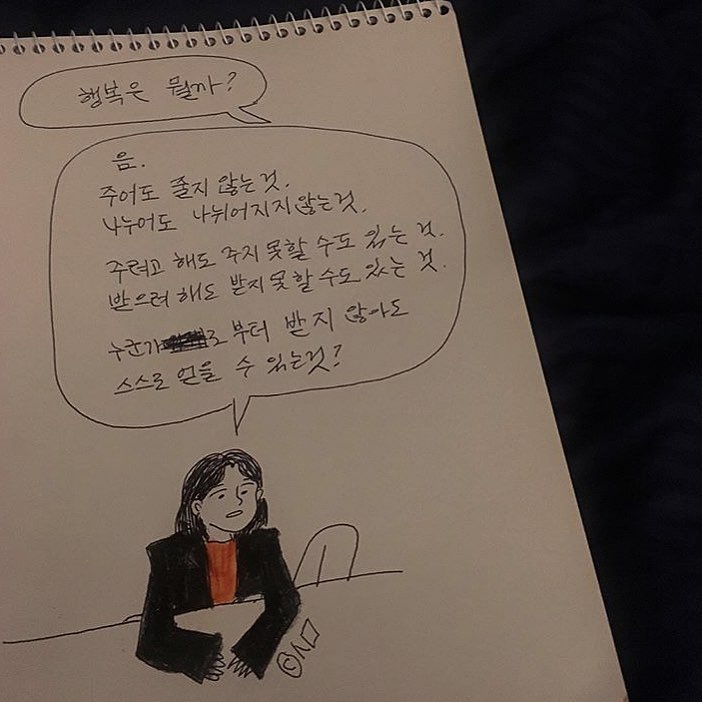 행복은 뭘까?
음.
주어도 줄지 않는것.
나누어도 나뉘어지지 않는것.
주려고 해도 주지 못할 수도 있는 것.
받으려 해도 받지 못할 수도 있는 것.
누군가로 부터 받지 않아도
스스로 얻을 수 있는것?